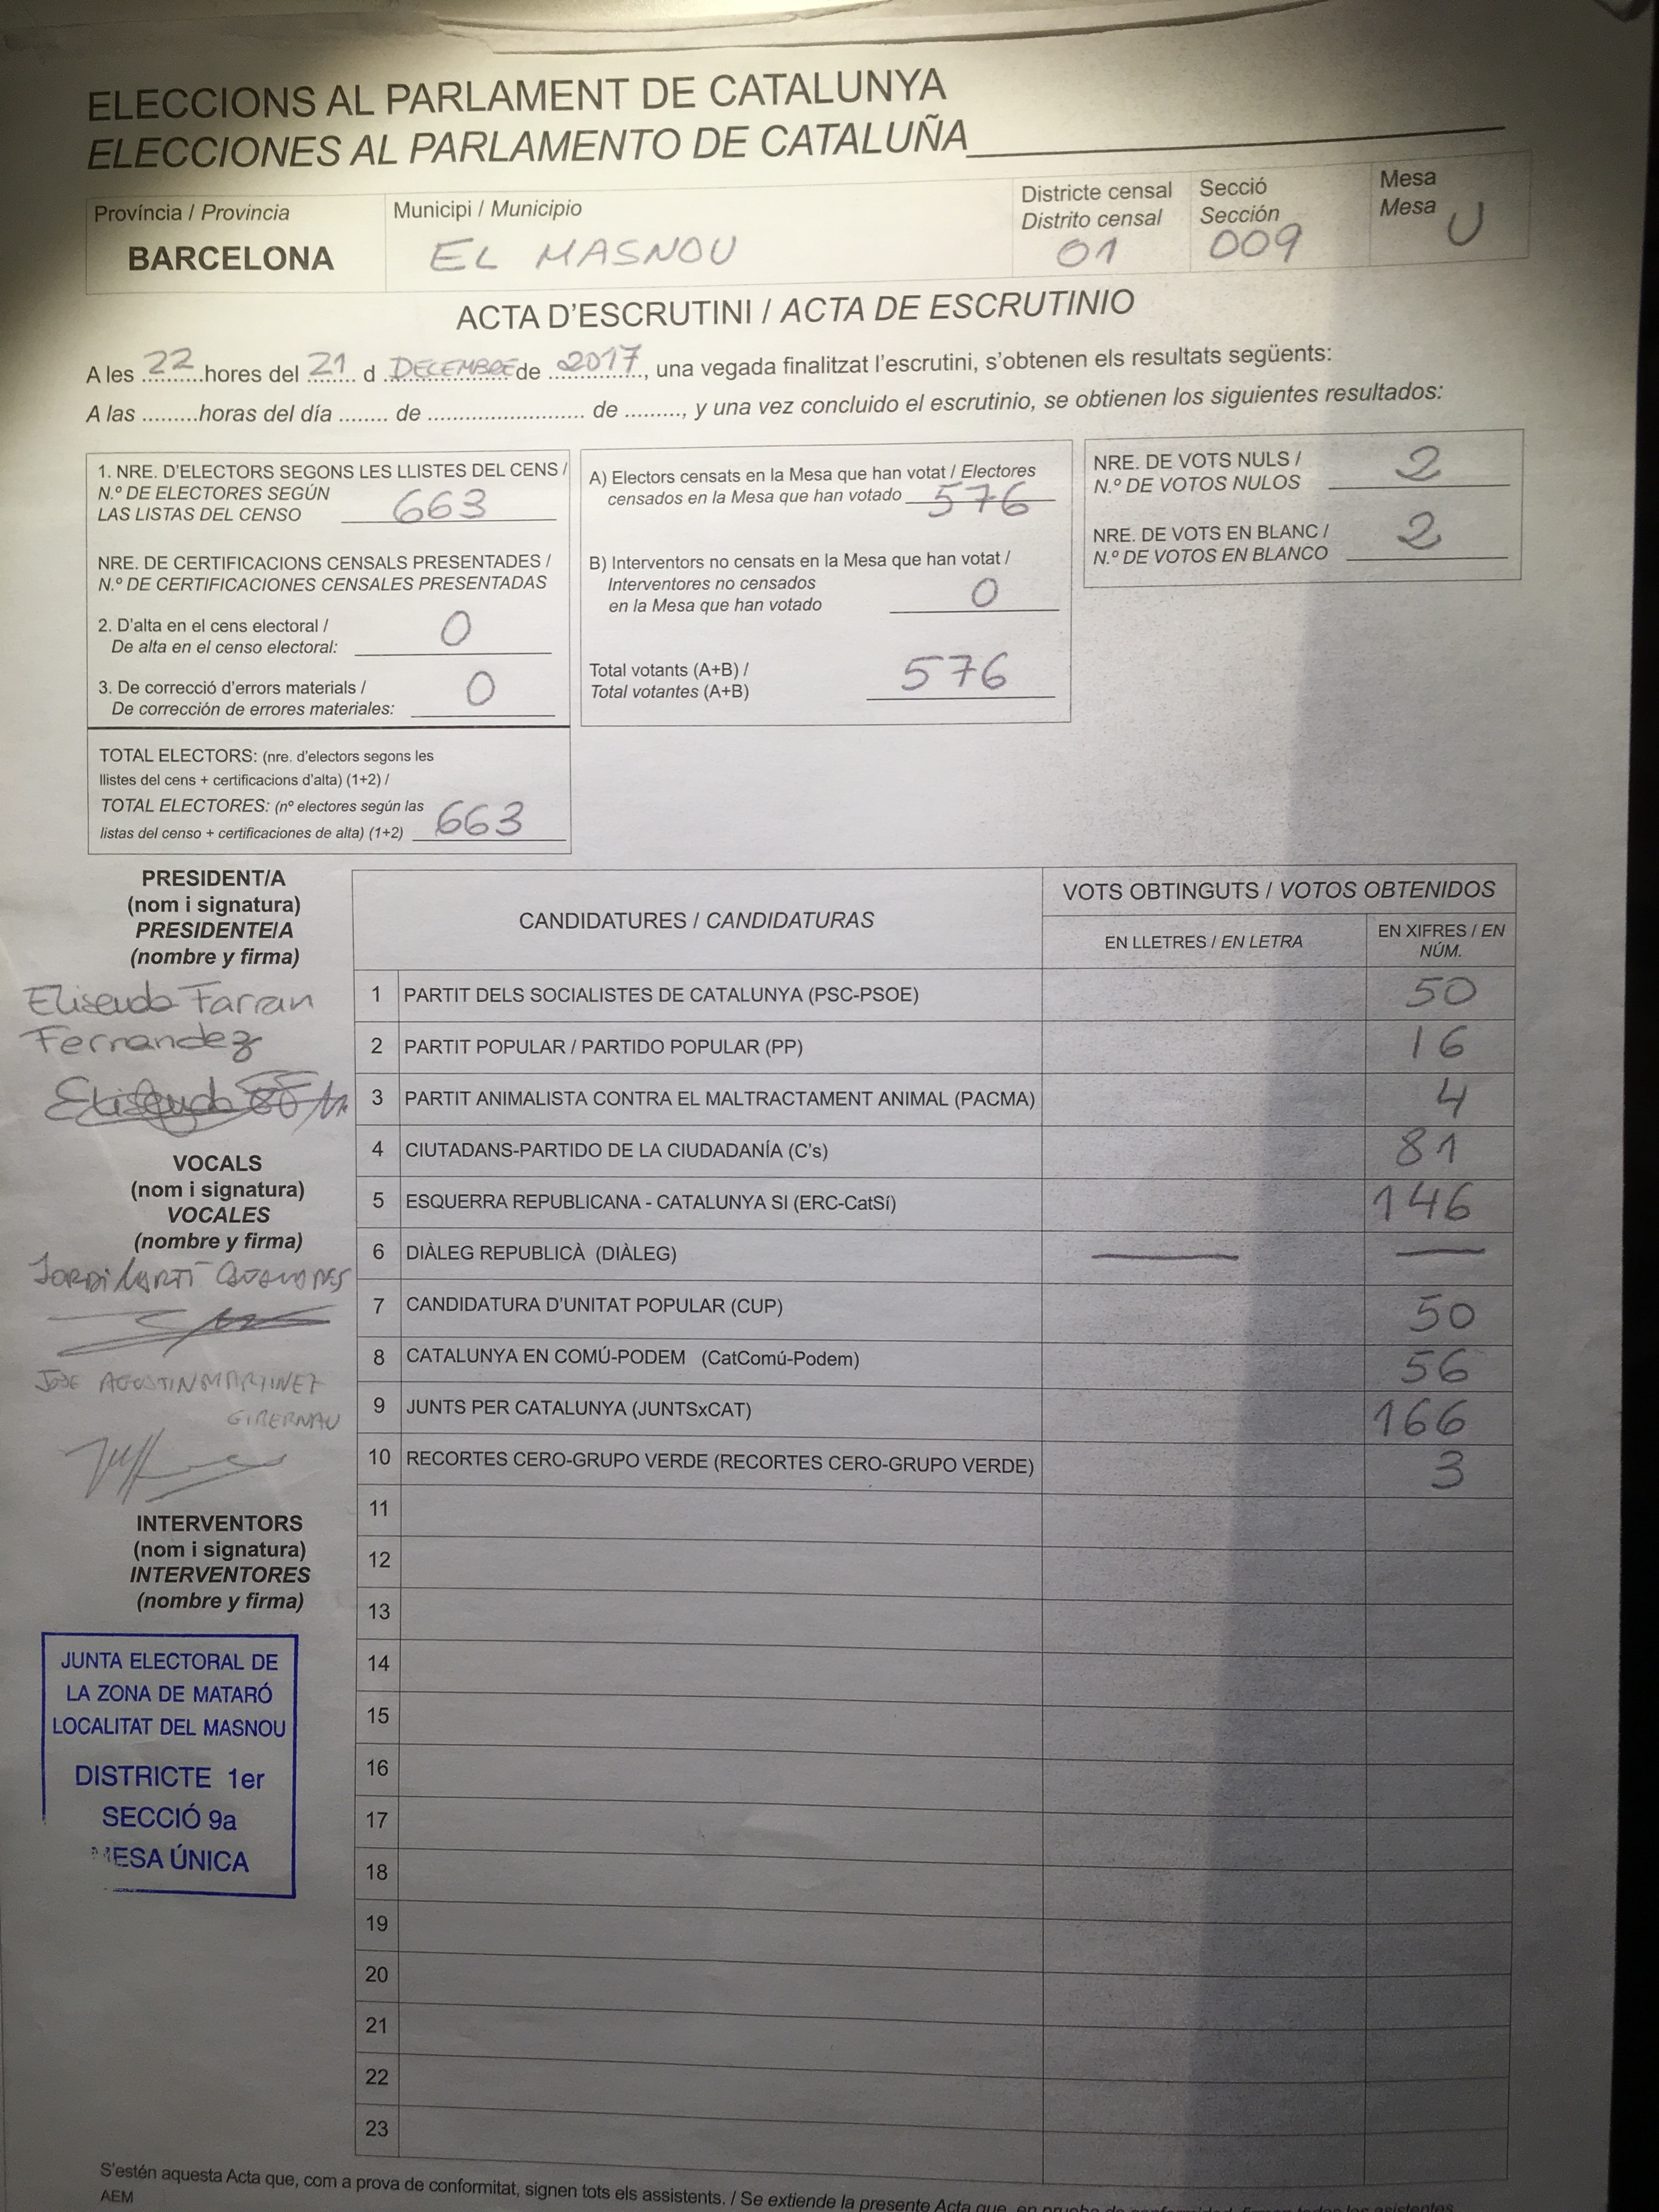 ELECCIONS AL PARLAMENT DE CATALUNYA
ELECCIONES AL PARLAMENTO DE CATALUÑA
Província / Provincia
BARCELONA
Municipi / Municipio
EL MASNOU
Districte censal
Distrito censal
01
Secció
Sección
009
Mesa
Mesa
U
ACTA D'ESCRUTINI / ACTA DE ESCRUTINIO
A les 22 hores del 21 d DECEMBRE de 2017, una vegada finalitzat l'escrutini, s'obtenen els resultats següents:
A las .........horas del día ........ de .......................... de ........., y una vez concluido el escrutinio, se obtienen los siguientes resultados:
1. NRE. D'ELECTORS SEGONS LES LLISTES DEL CENS /
N.º DE ELECTORES SEGÚN
LAS LISTAS DEL CENSO 663
NRE. DE CERTIFICACIONS CENSALS PRESENTADES /
N.º DE CERTIFICACIONES CENSALES PRESENTADAS
2. D'alta en el cens electoral /
De alta en el censo electoral: 0
3. De correcció d'errors materials /
De corrección de errores materiales: 0
TOTAL ELECTORS: (nre. d'electors segons les
llistes del cens + certificacions d'alta) (1+2) /
TOTAL ELECTORES: (nº electores según las
listas del censo + certificaciones de alta) (1+2) 663
A) Electors censats en la Mesa que han votat / Electores
censados en la Mesa que han votado 576
B) Interventors no censats en la Mesa que han votat /
Interventores no censados
en la Mesa que han votado 0
Total votants (A+B) /
Total votantes (A+B) 576
NRE. DE VOTS NULS /
N.º DE VOTOS NULOS 2
NRE. DE VOTS EN BLANC /
N.º DE VOTOS EN BLANCO 2
PRESIDENT/A
(nom i signatura)
PRESIDENTE/A
(nombre y firma)
Eliseuda Farran
Fernandez
VOCALS
(nom i signatura)
VOCALES
(nombre y firma)
JORDI MARTÍ
JOSE AGUSTIN MARTINEZ
GIBERNAU
INTERVENTORS
(nom i signatura)
INTERVENTORES
(nombre y firma)
JUNTA ELECTORAL DE
LA ZONA DE MATARÓ
LOCALITAT DEL MASNOU
DISTRICTE 1er
SECCIÓ 9a
MESA ÚNICA
CANDIDATURES / CANDIDATURAS
VOTS OBTINGUTS / VOTOS OBTENIDOS
EN LLETRES / EN LETRA
EN XIFRES / EN
NÚM.
1 PARTIT DELS SOCIALISTES DE CATALUNYA (PSC-PSOE) 50
2 PARTIT POPULAR / PARTIDO POPULAR (PP) 16
3 PARTIT ANIMALISTA CONTRA EL MALTRACTAMENT ANIMAL (PACMA) 4
4 CIUTADANS-PARTIDO DE LA CIUDADANÍA (C's) 81
5 ESQUERRA REPUBLICANA - CATALUNYA SI (ERC-CatSí) 146
6 DIÀLEG REPUBLICÀ (DIÀLEG) — —
7 CANDIDATURA D'UNITAT POPULAR (CUP) 50
8 CATALUNYA EN COMÚ-PODEM (CatComú-Podem) 56
9 JUNTS PER CATALUNYA (JUNTSxCAT) 166
10 RECORTES CERO-GRUPO VERDE (RECORTES CERO-GRUPO VERDE) 3
11
12
13
14
15
16
17
18
19
20
21
22
23
S'estén aquesta Acta que, com a prova de conformitat, signen tots els assistents. / Se extiende la presente Acta que, en prueba de conformidad, firman todos los asistentes
AEM